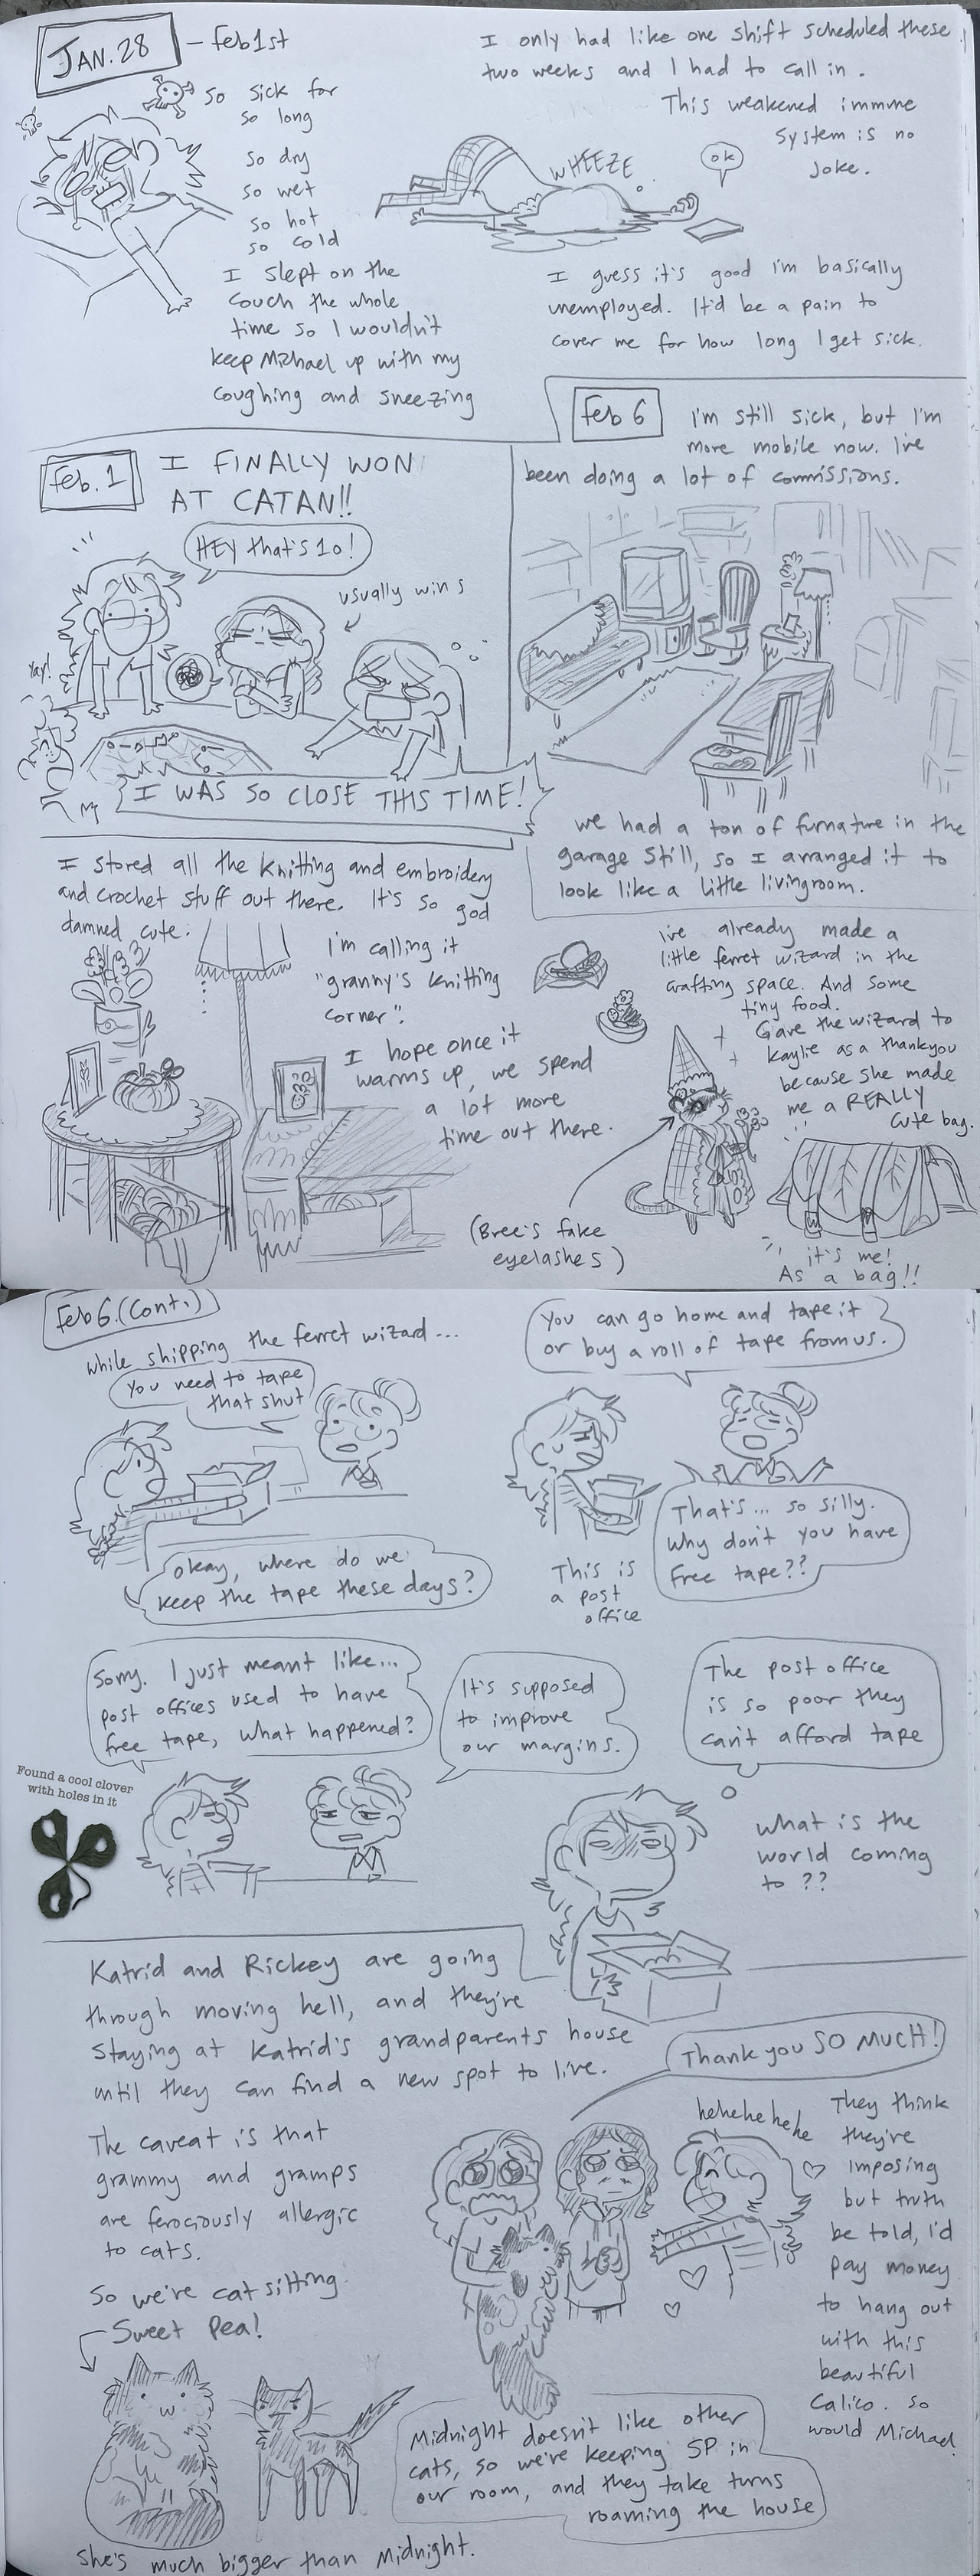 JAN. 28
- Feb 1st
So sick for
so long
so dry
so wet
so hot
so cold
I slept on the
couch the whole
time so I wouldn't
keep Michael up with my
coughing and sneezing
I only had like one shift scheduled these
two weeks and I had to call in.
This weakened immune
system is no
joke.
WHEEZE
ok
I guess it's good I'm basically
unemployed. It'd be a pain to
cover me for how long I get sick.
Feb. 1
I FINALLY WON
AT CATAN!!
HEY that's 10!
usually wins
Yay!
I WAS SO CLOSE THIS TIME!
Feb 6
I'm still sick, but I'm
more mobile now. I've
been doing a lot of commissions.
we had a ton of furnature in the
garage still, so I arranged it to
look like a little livingroom.
I stored all the knitting and embroidery
and crochet stuff out there. It's so god
damned cute.
I'm calling it
"granny's knitting
corner".
I hope once it
warms up, we spend
a lot more
time out there.
I've already made a
little ferret wizard in the
crafting space. And some
tiny food.
Gave the wizard to
Kaylie as a thankyou
because she made
me a REALLY
cute bag.
(Bree's fake
eyelashes)
it's me!
As a bag!!
Feb 6. (Cont.)
while shipping the ferret wizard...
You need to tape
that shut
okay, where do we
keep the tape these days?
You can go home and tape it
or buy a roll of tape from us.
That's... so silly.
Why don't you have
free tape??
This is
a post
office
Sorry. I just meant like...
post offices used to have
free tape, what happened?
It's supposed
to improve
our margins.
The post office
is so poor they
can't afford tape
Found a cool clover
with holes in it
what is the
world coming
to??
Katrid and Rickey are going
through moving hell, and they're
staying at Katrid's grandparents house
until they can find a new spot to live.
The caveat is that
grammy and gramps
are ferociously allergic
to cats.
So we're cat sitting
Sweet Pea!
Thank you SO MUCH!
hehehehehe
They think
they're
imposing
but truth
be told, I'd
pay money
to hang out
with this
beautiful
calico. so
would Michael.
Midnight doesn't like other
cats, so we're keeping SP in
our room, and they take turns
roaming the house
She's much bigger than Midnight.